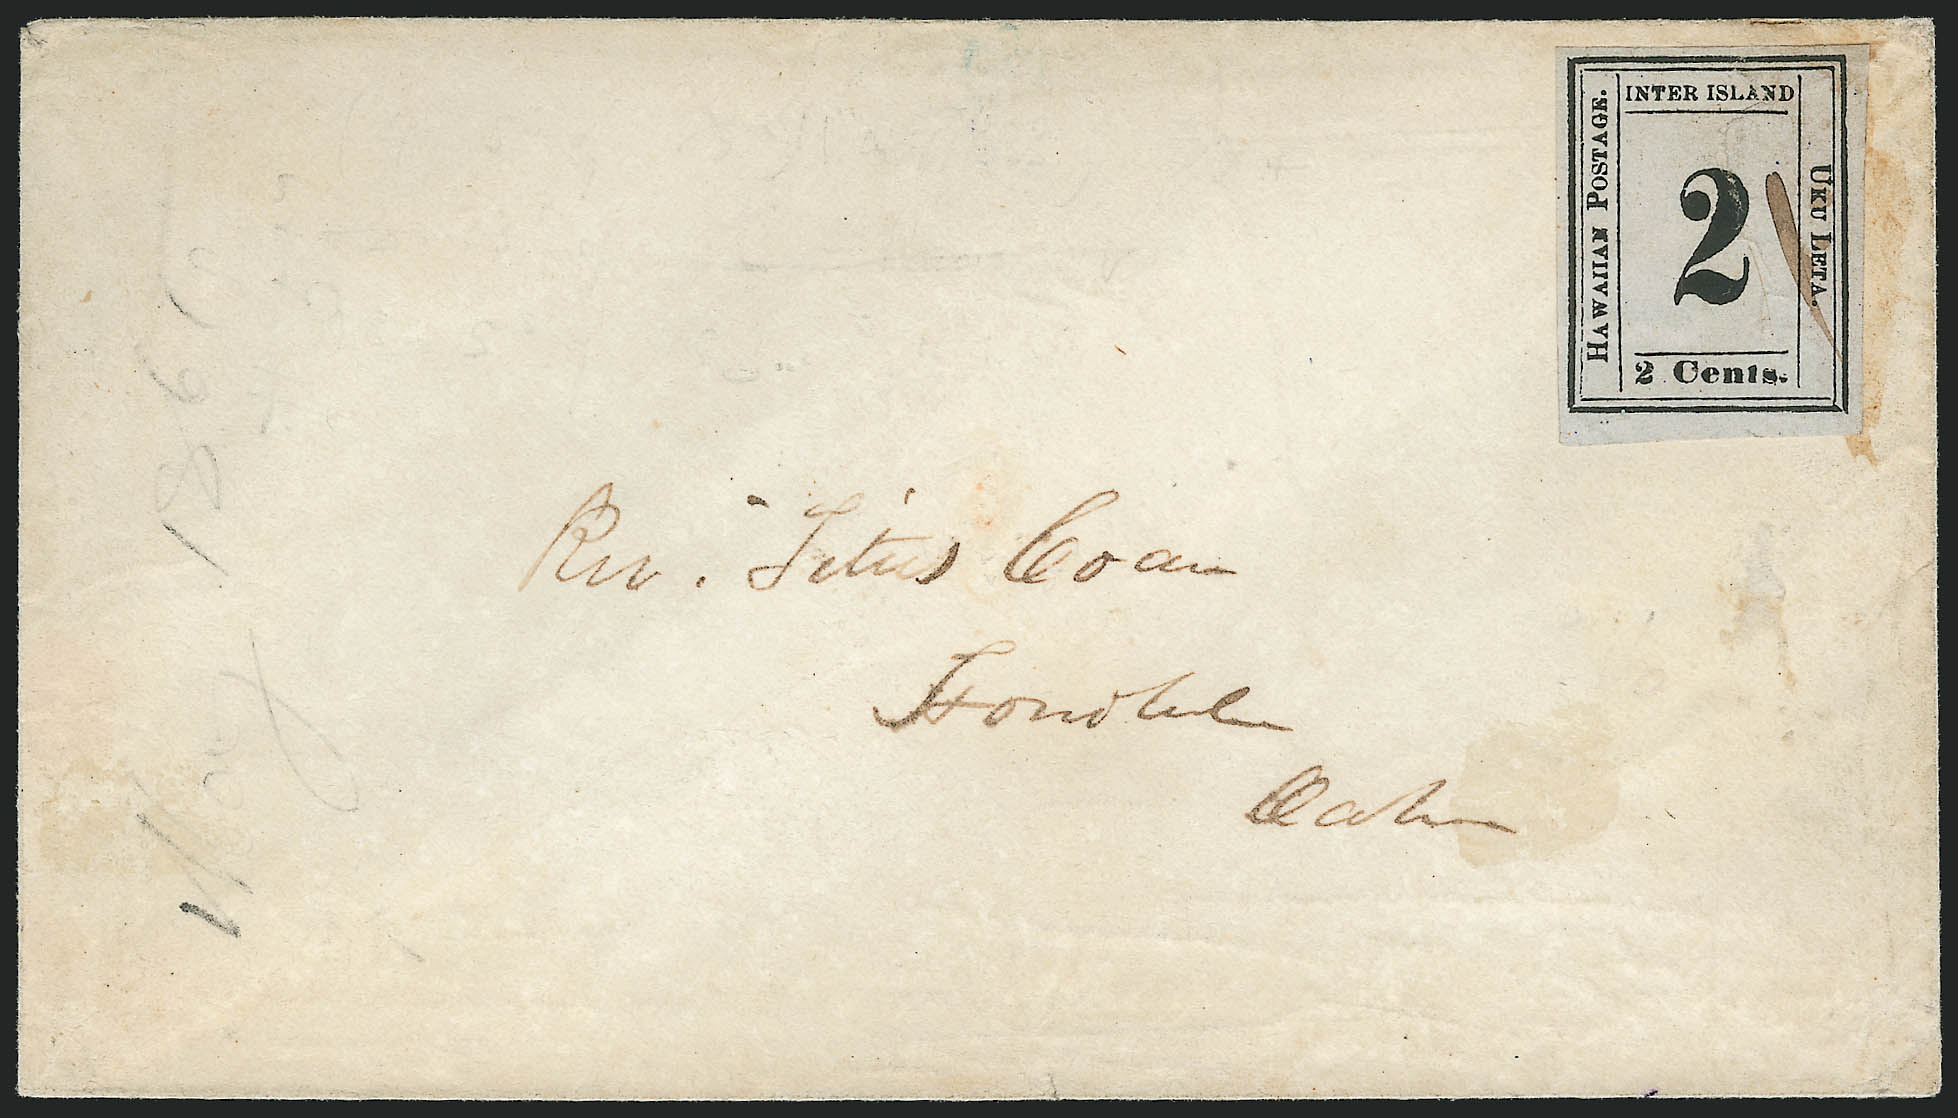 HAWAIIAN POSTAGE.
INTER ISLAND
UKU LETA.
2
2 Cents.
Rev. Titus Coan
Honolulu
Oahu